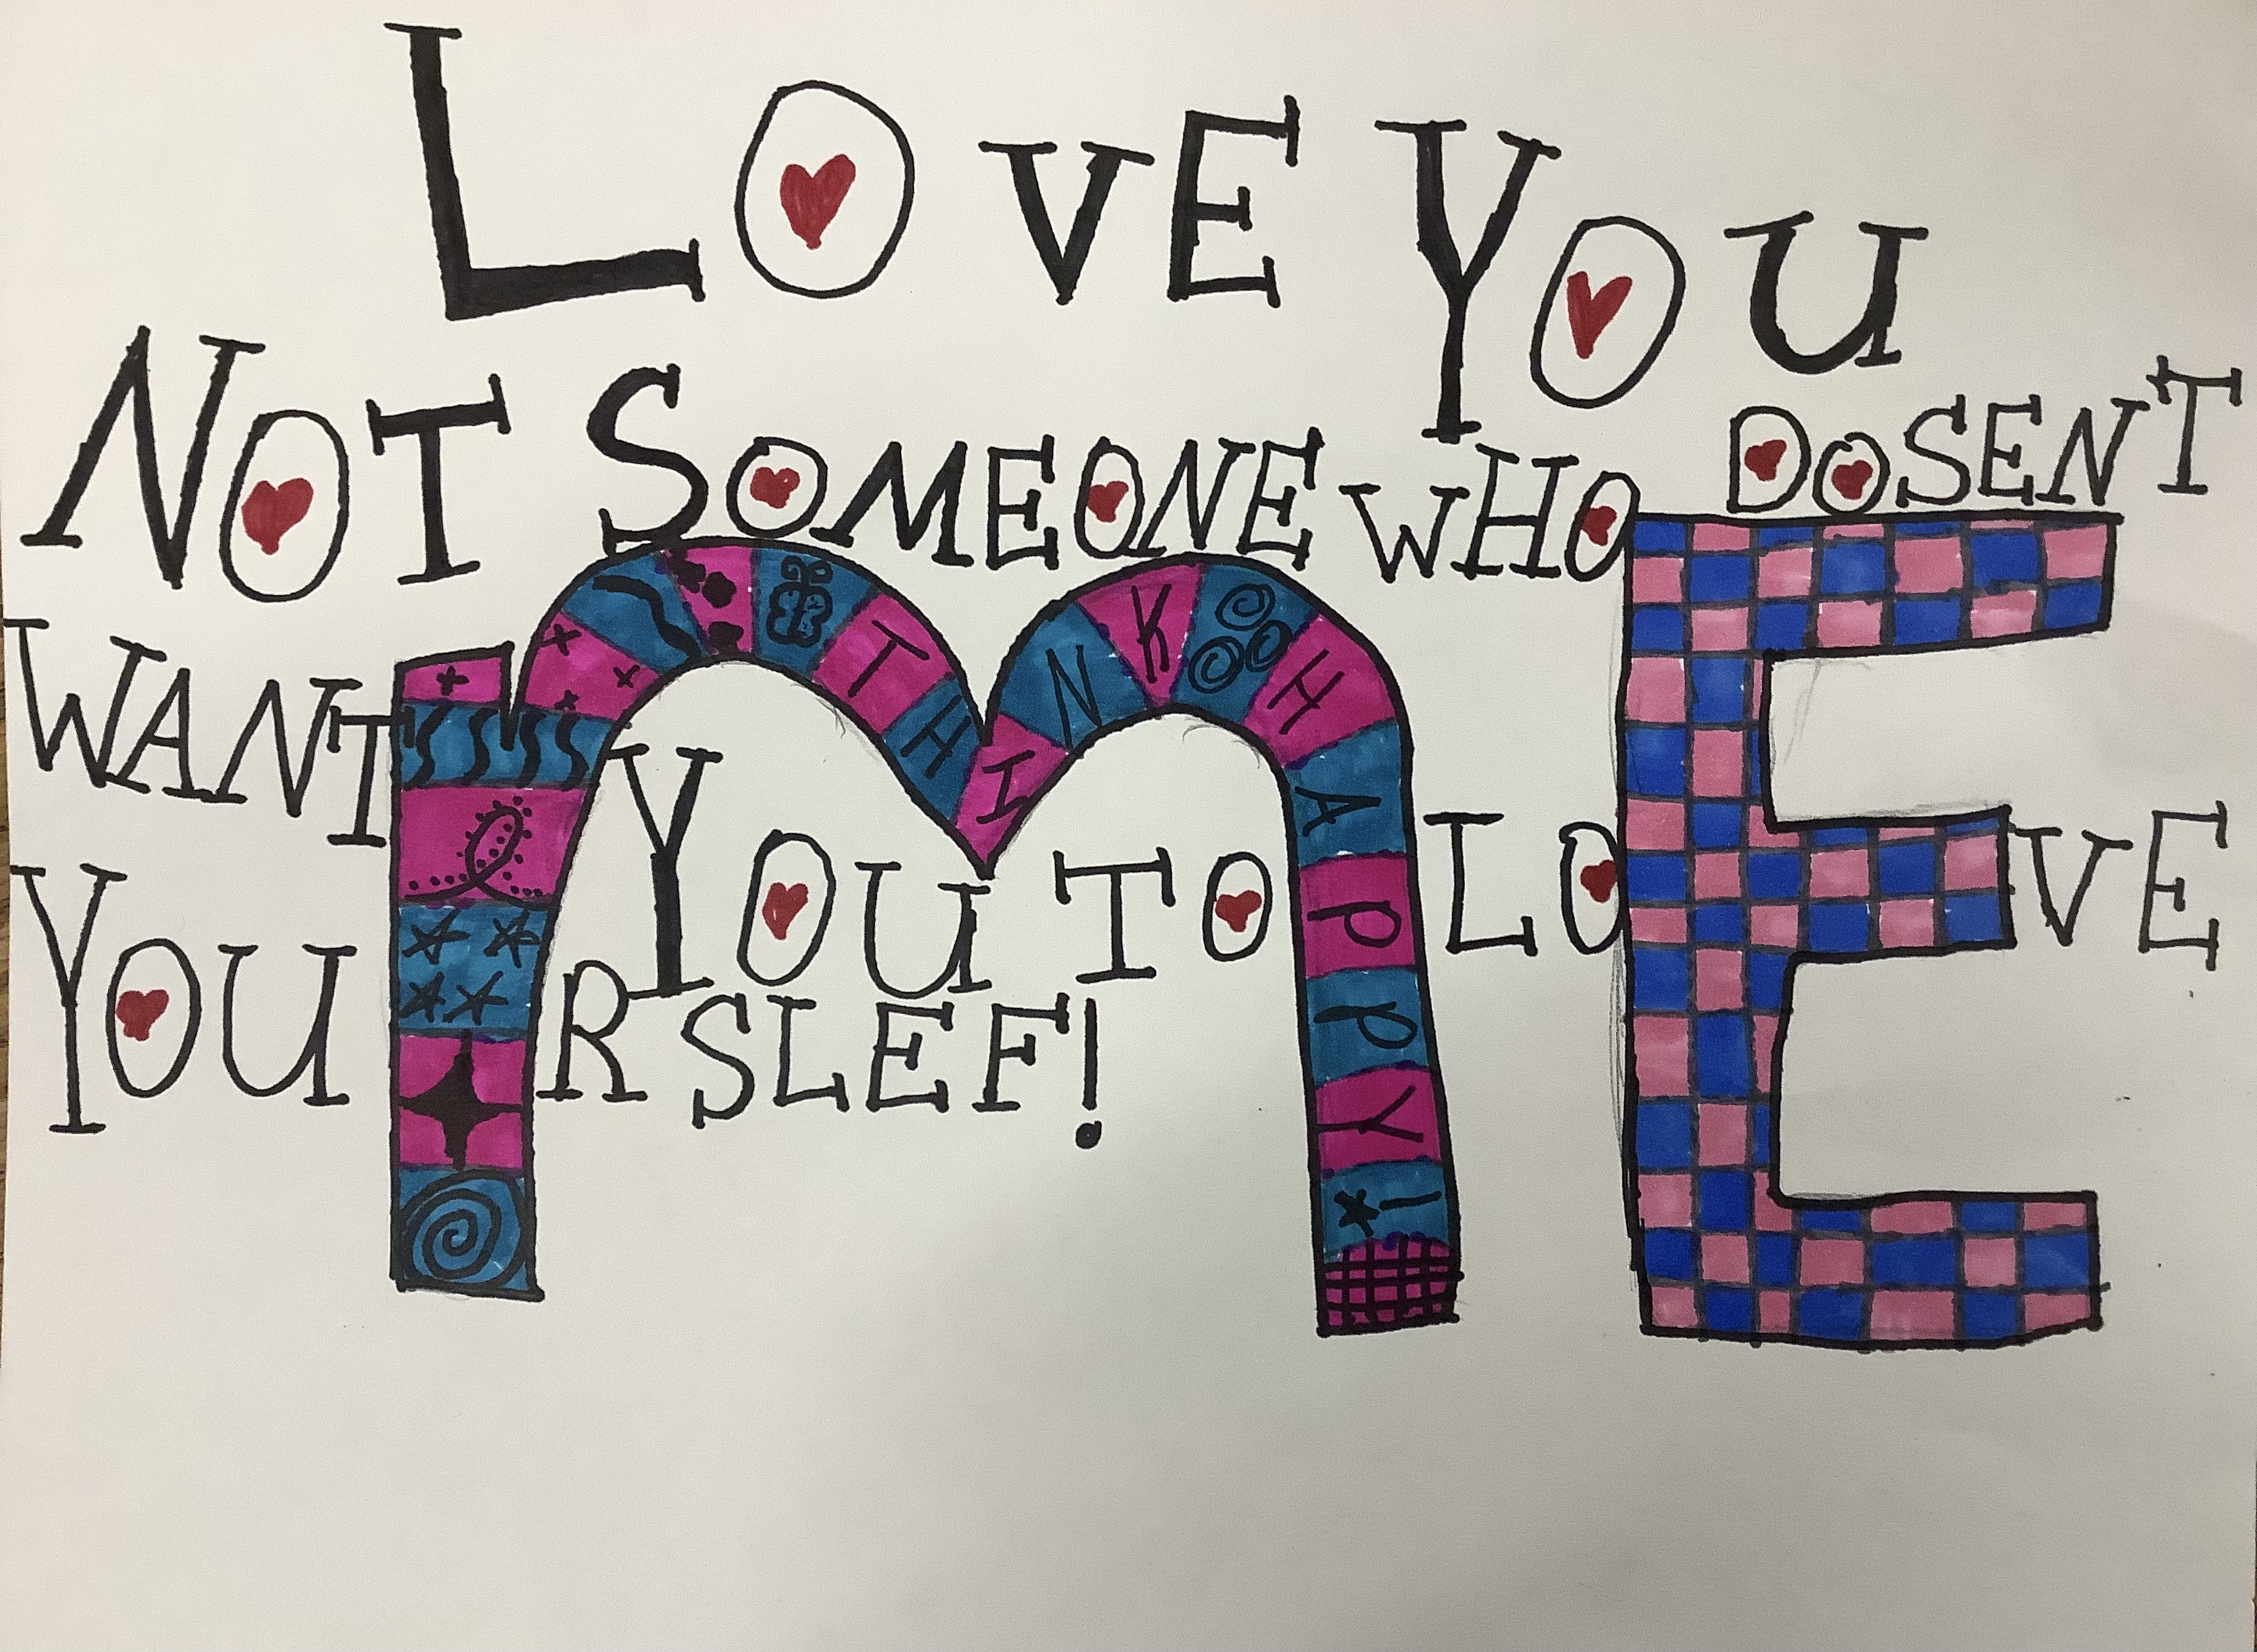 LOVE YOU
NOT SOMEONE WHO DOSEN'T
WANT YOU TO LOVE
YOURSLEF!
mE
THINK HAPPY!